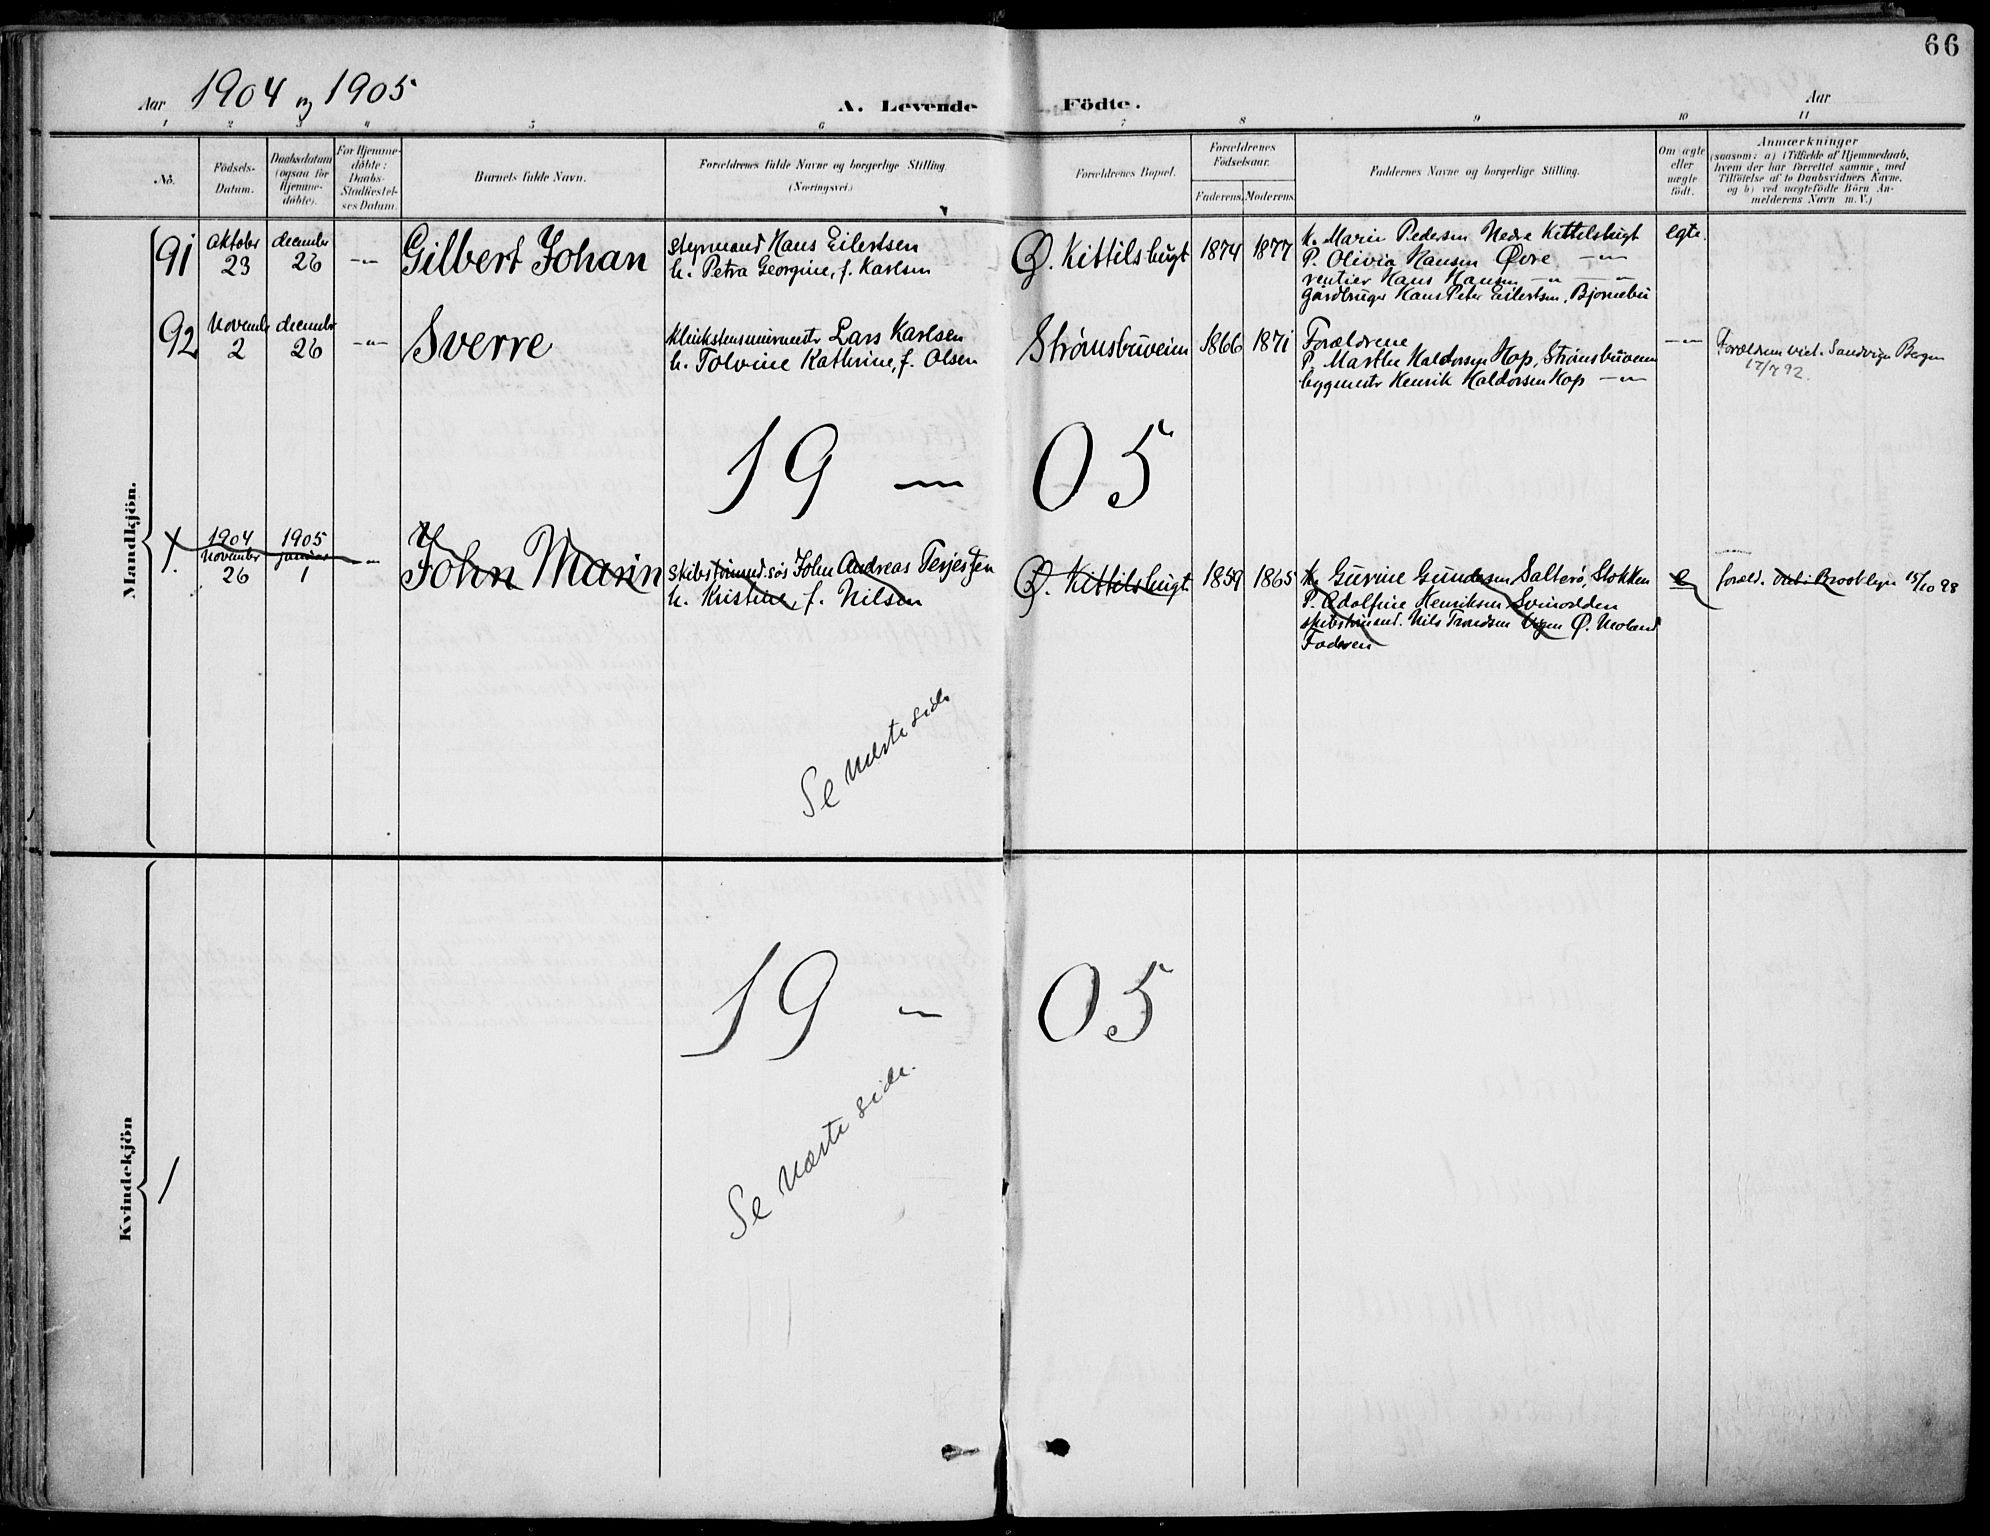 66
Aar 1904 og 1905
A. Levende Födte.
Aar
1 2 3 4 5 6 7 8 9 10 11
No.
Födsels-Datum.
Daabsdatum (ogsaa for Hjemme-döbte).
For Hjemme-döbte: Daabs-Stadfæstel-ses Datum.
Barnets fulde Navn.
Forældrenes fulde Navne og borgerlige Stilling. (Næringsvei.)
Forældrenes Bopæl.
Forældrenes Födselsaar.
Faderens. Moderens.
Faddernes Navne og borgerlige Stilling.
Om ægte eller uægte födt.
Anmærkninger
(saasom: a) i Tilfælde af Hjemmedaab,
hvem der har forrettet samme, med
Tilföielse af to Daabsvidners Navne,
og b) ved uægtefödte Börn An-
melderens Navn m. V.)
Mandkjön.
91 Oktober 23 december 26 -"- Gilbert Johan
Styrmand Hans Eilertsen
h. Petra Georgine, f. Karlsen
Ø. Kittilsbugt 1874 1877
K. Marie Pedersen Nedre Kittelsbugt
P. Olivia Hansen Øvre -"-
rentier Hans Hansen -"- -"-
gårdbruger Hans Peter Eilertsen, Bjornebu
egte.
92 Novembr 2 decembr 26 -"- Sverre
Lars Karlsen
h. Tolvine Kathrine, f. Olsen
Strømsbuveien 1866 1871
Forældrene
P. Marthe Haldorsen Hop, Strømsbuveien
bygmestr Henrik Haldorsen Hop -"-
-"-
Forældrene viet i Sandvigen Bergen
17/7 92.
19 — 05
1. 1904 November 26 1905 januar 1 -"- John Marin
John Andreas Terjesen
h. Kristine, f. Nilsen
Ø. Kittilsbugt 1859 1865
K. Gurine Gundersen Salterø, Stokken
P. Adolfine Henriksen, Svinodden
skibstømmd. Nils Trondsen Ø. Moland
Faderen
e
foræld. 15/10 98
Se næste side
Kvindekjön
19 — 05
1
Se næste side.